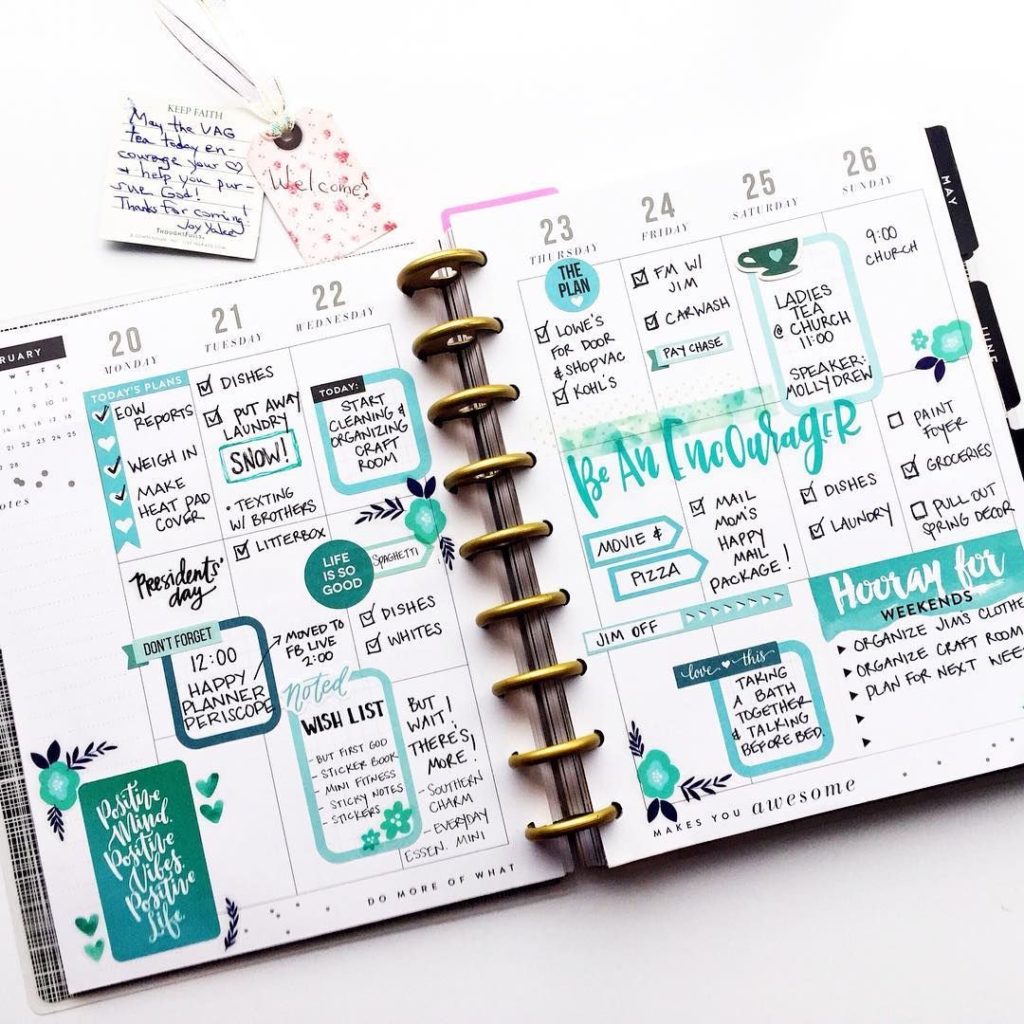 KEEP FAITH
May the VAG
tea today en-
courage your ♡
+ help you pur-
sue God!
Thanks for coming!
THOUGHTFULLS
Welcome!
RUARY
W T F S
1 2 3 4
8 9 10 11
28
otes
20
MONDAY
TODAY'S PLANS
✓ EOW
REPORTS
✓ WEIGH IN
✓ MAKE
HEAT PAD
COVER
Presidents'
day
DON'T FORGET
12:00
HAPPY
PLANNER
PERISCOPE
Positive
Mind.
Positive
Vibes.
Positive
Life.
21
TUESDAY
☑ DISHES
☑ PUT AWAY
LAUNDRY
SNOW!
• TEXTING
W/ BROTHERS
☑ LITTERBOX
MOVED TO
FB LIVE
2:00
noted
WISH LIST
- BUT FIRST GOD
- STICKER BOOK
- MINI FITNESS
- STICKY NOTES
- STICKERS
22
WEDNESDAY
TODAY:
START
CLEANING &
ORGANIZING
CRAFT
ROOM
LIFE
IS SO
GOOD
SPAGHETTI
☑ DISHES
☑ WHITES
BUT
WAIT!
THERE'S
MORE!
- SOUTHERN
CHARM
- EVERYDAY
ESSEN. MINI
DO MORE OF WHAT
23
THURSDAY
THE
PLAN
☑ LOWE'S
FOR DOOR
& SHOPVAC
☑ KOHL'S
24
FRIDAY
☑ FM W/
JIM
☑ CARWASH
PAY CHASE
Be AN ENCOURAGER
MOVIE &
PIZZA
☑ MAIL
MOM'S
HAPPY
MAIL
PACKAGE!
JIM OFF
love ♥ this
TAKING
A BATH
TOGETHER
& TALKING
BEFORE BED.
25
SATURDAY
LADIES
TEA
@ CHURCH
11:00
SPEAKER:
MOLLY DREW
☑ DISHES
☑ LAUNDRY
26
SUNDAY
9:00
CHURCH
☐ PAINT
FOYER
☑ GROCERIES
☐ PULL OUT
SPRING DECOR
Hooray for
WEEKENDS
▸ ORGANIZE JIM'S CLOTHE
▸ ORGANIZE CRAFT ROOM
▸ PLAN FOR NEXT WEE
MAKES YOU awesome
MAY
JUNE